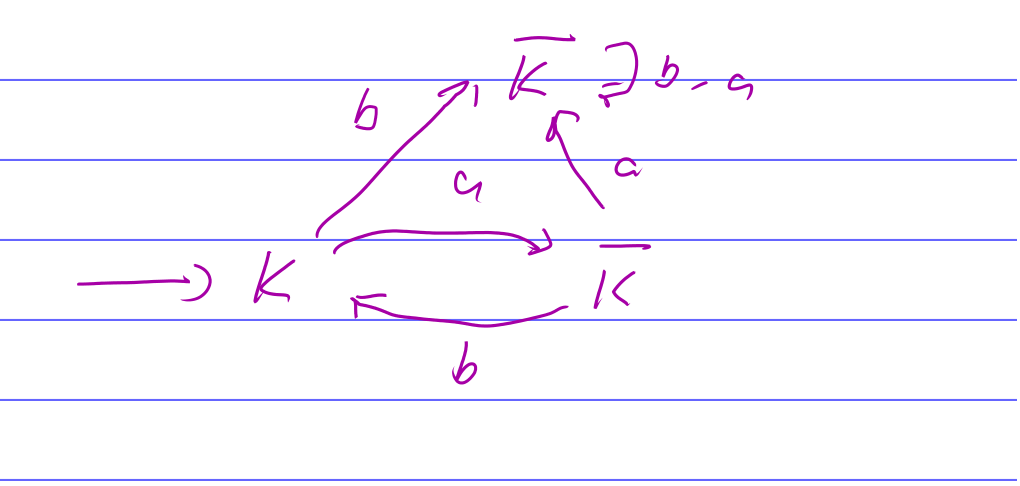 K b - a
b
a
a
K K
b